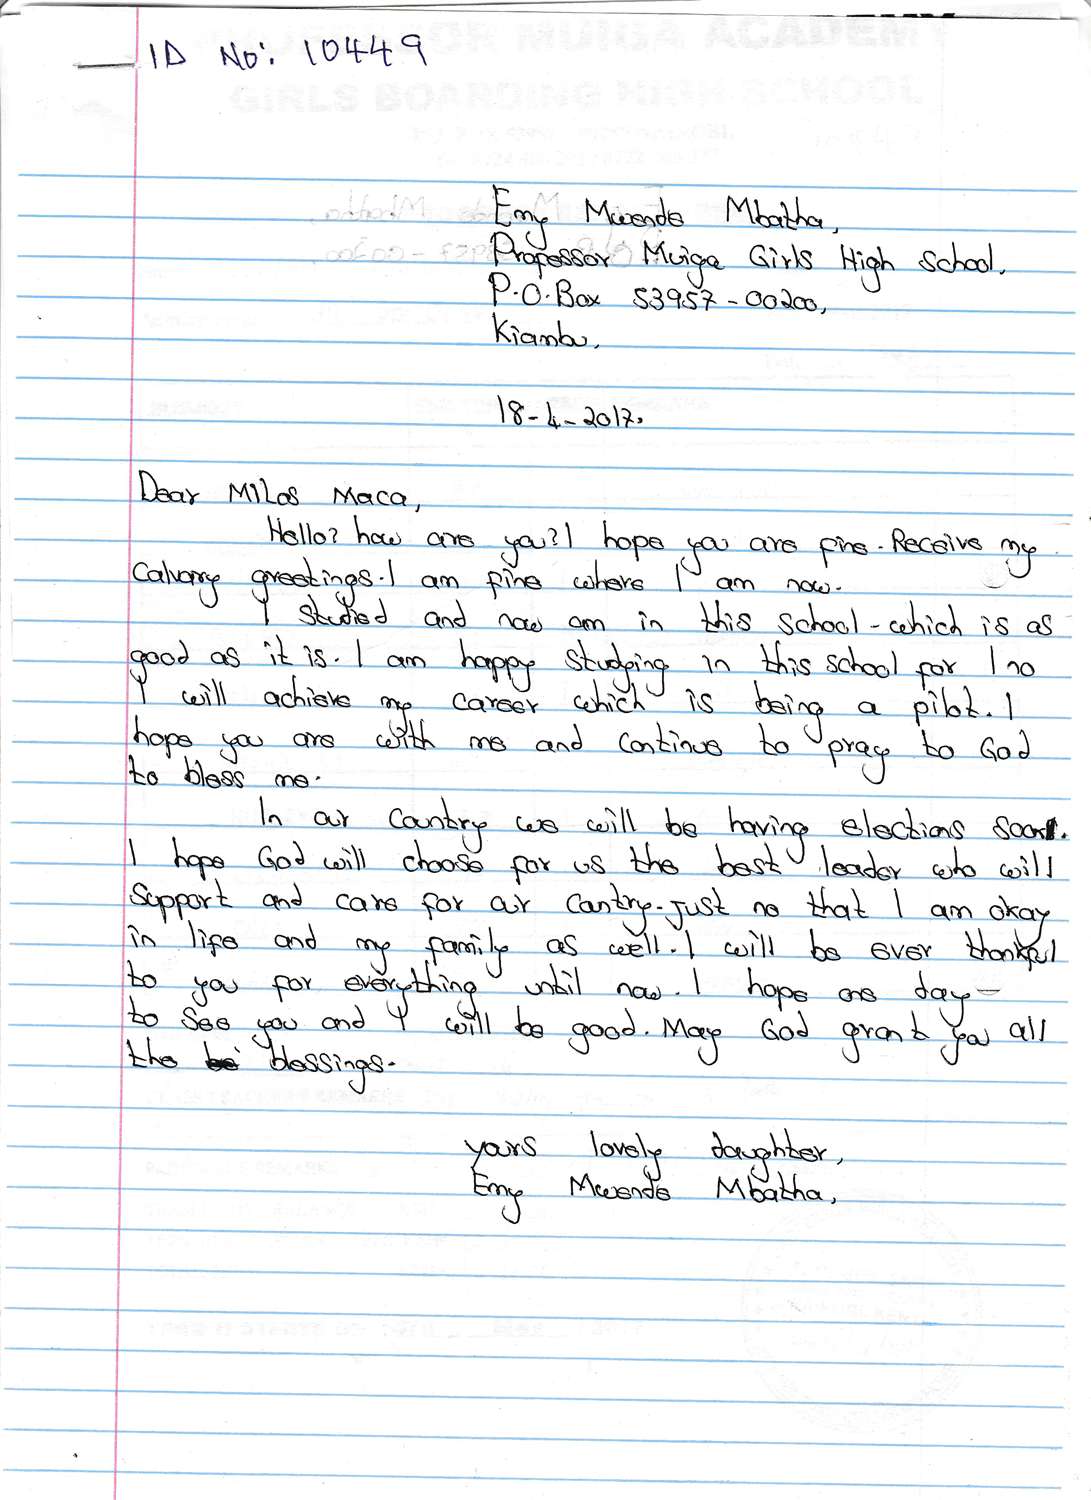 ID No: 10449
Emy Mwende Mbatha,
Professor Muiga Girls High School,
P.O.Box 53957-00200,
Kiambu,
18-4-2017.
Dear Milos Maca,
Hello? how are you? I hope you are fine. Receive my
Calvary greetings. I am fine where I am now.
I studied and now am in this school - which is as
good as it is. I am happy studying in this school for I no
I will achieve my career which is being a pilot. I
hope you are with me and continue to pray to God
to bless me.
In our country we will be having elections soon.
I hope God will choose for us the best leader who will
support and care for our country. Just no that I am okay
in life and my family as well. I will be ever thankful
to you for everything until now. I hope one day -
to see you and I will be good. May God grant you all
the blessings.
yours lovely daughter,
Emy Mwende Mbatha,
PROFESSOR MUIGA ACADEMY
GIRLS BOARDING HIGH SCHOOL